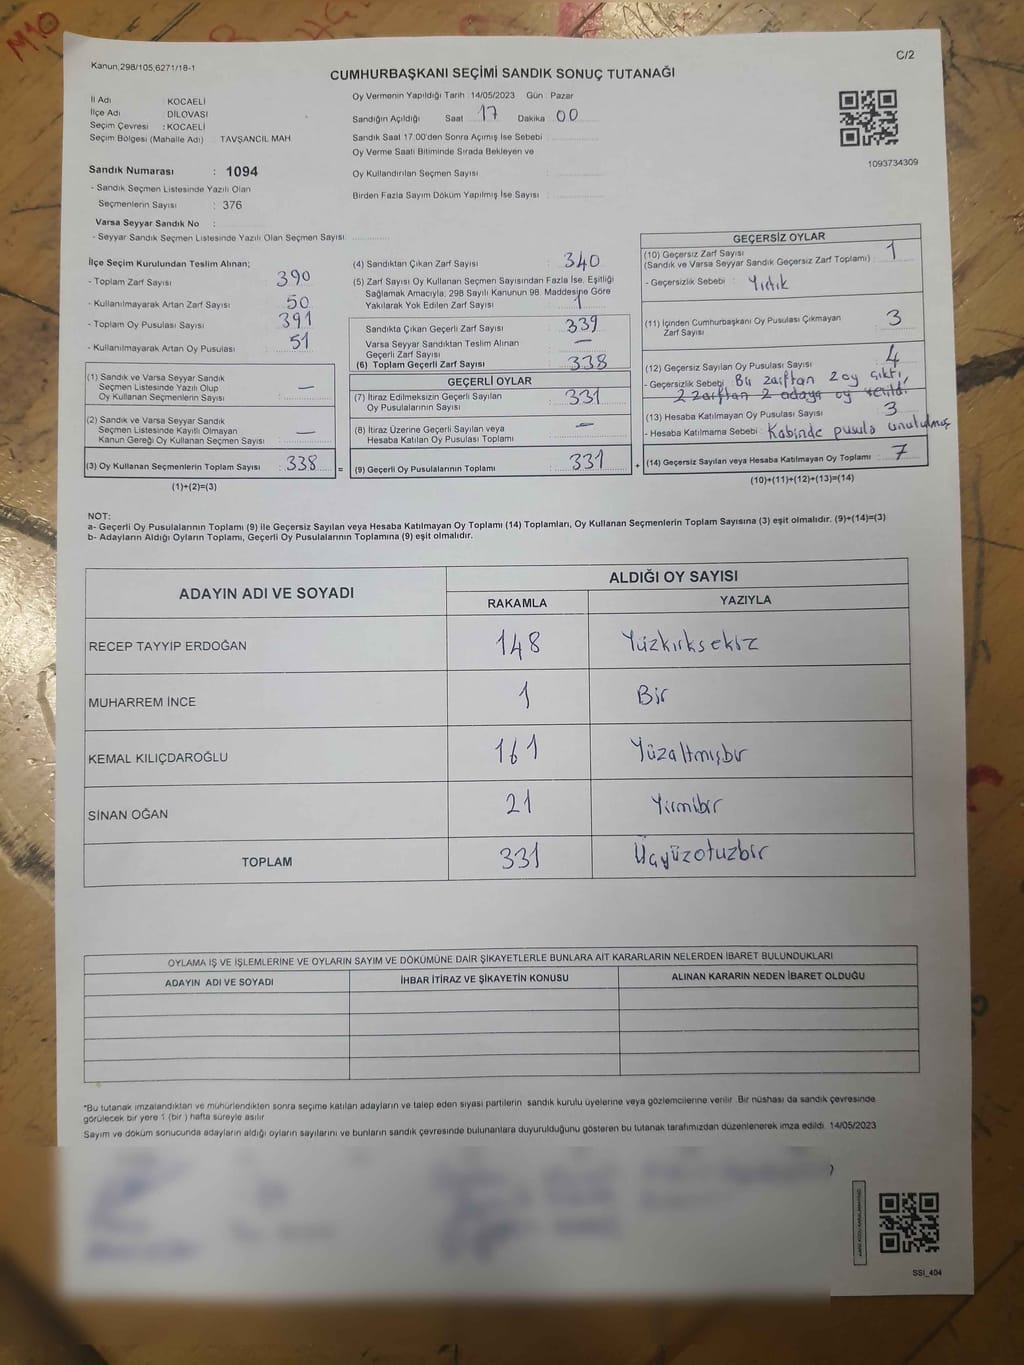 Kanun,298/105,6271/18-1
C/2
CUMHURBAŞKANI SEÇİMİ SANDIK SONUÇ TUTANAĞI
İl Adı : KOCAELİ
İlçe Adı : DİLOVASI
Seçim Çevresi : KOCAELİ
Seçim Bölgesi (Mahalle Adı) : TAVŞANCIL MAH
Oy Vermenin Yapıldığı Tarih :14/05/2023 Gün : Pazar
Sandığın Açıldığı Saat 17 Dakika 00
Sandık Saat 17:00'den Sonra Açımış İse Sebebi
Oy Verme Saati Bitiminde Sırada Bekleyen ve
Oy Kullandırılan Seçmen Sayısı
Birden Fazla Sayım Döküm Yapılmış İse Sayısı
1093734309
Sandık Numarası : 1094
- Sandık Seçmen Listesinde Yazılı Olan
Seçmenlerin Sayısı : 376
Varsa Seyyar Sandık No :
- Seyyar Sandık Seçmen Listesinde Yazılı Olan Seçmen Sayısı:
İlçe Seçim Kurulundan Teslim Alınan;
- Toplam Zarf Sayısı : 390
- Kullanılmayarak Artan Zarf Sayısı : 50
- Toplam Oy Pusulası Sayısı : 391
- Kullanılmayarak Artan Oy Pusulası : 51
(1) Sandık ve Varsa Seyyar Sandık
Seçmen Listesinde Yazılı Olup
Oy Kullanan Seçmenlerin Sayısı : —
(2) Sandık ve Varsa Seyyar Sandık
Seçmen Listesinde Kayıtlı Olmayan
Kanun Gereği Oy Kullanan Seçmen Sayısı : —
(3) Oy Kullanan Seçmenlerin Toplam Sayısı : 338 =
(1)+(2)=(3)
(4) Sandıktan Çıkan Zarf Sayısı : 340
(5) Zarf Sayısı Oy Kullanan Seçmen Sayısından Fazla İse, Eşitliği
Sağlamak Amacıyla; 298 Sayılı Kanunun 98. Maddesine Göre
Yakılarak Yok Edilen Zarf Sayısı : 1
Sandıkta Çıkan Geçerli Zarf Sayısı : 339
Varsa Seyyar Sandıktan Teslim Alınan
Geçerli Zarf Sayısı : —
(6) Toplam Geçerli Zarf Sayısı : 338
GEÇERLİ OYLAR
(7) İtiraz Edilmeksizin Geçerli Sayılan
Oy Pusulalarının Sayısı : 331
(8) İtiraz Üzerine Geçerli Sayılan veya
Hesaba Katılan Oy Pusulası Toplamı : —
(9) Geçerli Oy Pusulalarının Toplamı : 331 +
GEÇERSİZ OYLAR
(10) Geçersiz Zarf Sayısı
(Sandık ve Varsa Seyyar Sandık Geçersiz Zarf Toplamı) : 1
- Geçersizlik Sebebi : Yırtık
(11) İçinden Cumhurbaşkanı Oy Pusulası Çıkmayan
Zarf Sayısı : 3
(12) Geçersiz Sayılan Oy Pusulası Sayısı : 4
- Geçersizlik Sebebi : Bir zarftan 2 oy çıktı,
2 zarftan 2 adaya oy verildi.
(13) Hesaba Katılmayan Oy Pusulası Sayısı : 3
- Hesaba Katılmama Sebebi : Kabinde pusula unutulmuş
(14) Geçersiz Sayılan veya Hesaba Katılmayan Oy Toplamı : 7
(10)+(11)+(12)+(13)=(14)
NOT:
a- Geçerli Oy Pusulalarının Toplamı (9) ile Geçersiz Sayılan veya Hesaba Katılmayan Oy Toplamı (14) Toplamları, Oy Kullanan Seçmenlerin Toplam Sayısına (3) eşit olmalıdır. (9)+(14)=(3)
b- Adayların Aldığı Oyların Toplamı, Geçerli Oy Pusulalarının Toplamına (9) eşit olmalıdır.
ADAYIN ADI VE SOYADI
ALDIĞI OY SAYISI
RAKAMLA YAZIYLA
RECEP TAYYIP ERDOĞAN 148 Yüzkırksekiz
MUHARREM İNCE 1 Bir
KEMAL KILIÇDAROĞLU 161 Yüzaltmışbir
SİNAN OĞAN 21 Yirmibir
TOPLAM 331 Üçyüzotuzbir
OYLAMA İŞ VE İŞLEMLERİNE VE OYLARIN SAYIM VE DÖKÜMÜNE DAİR ŞİKAYETLERLE BUNLARA AİT KARARLARIN NELERDEN İBARET BULUNDUKLARI
ADAYIN ADI VE SOYADI İHBAR İTİRAZ VE ŞİKAYETİN KONUSU ALINAN KARARIN NEDEN İBARET OLDUĞU
*Bu tutanak imzalandıktan ve mühürlendikten sonra seçime katılan adayların ve talep eden siyasi partilerin sandık kurulu üyelerine veya gözlemcilerine verilir. Bir nüshası da sandık çevresinde
görülecek bir yere 1 (bir ) hafta süreyle asılır
Sayım ve döküm sonucunda adayların aldığı oyların sayılarını ve bunların sandık çevresinde bulunanlara duyurulduğunu gösteren bu tutanak tarafımızdan düzenlenerek imza edildi. 14/05/2023
SSI_404